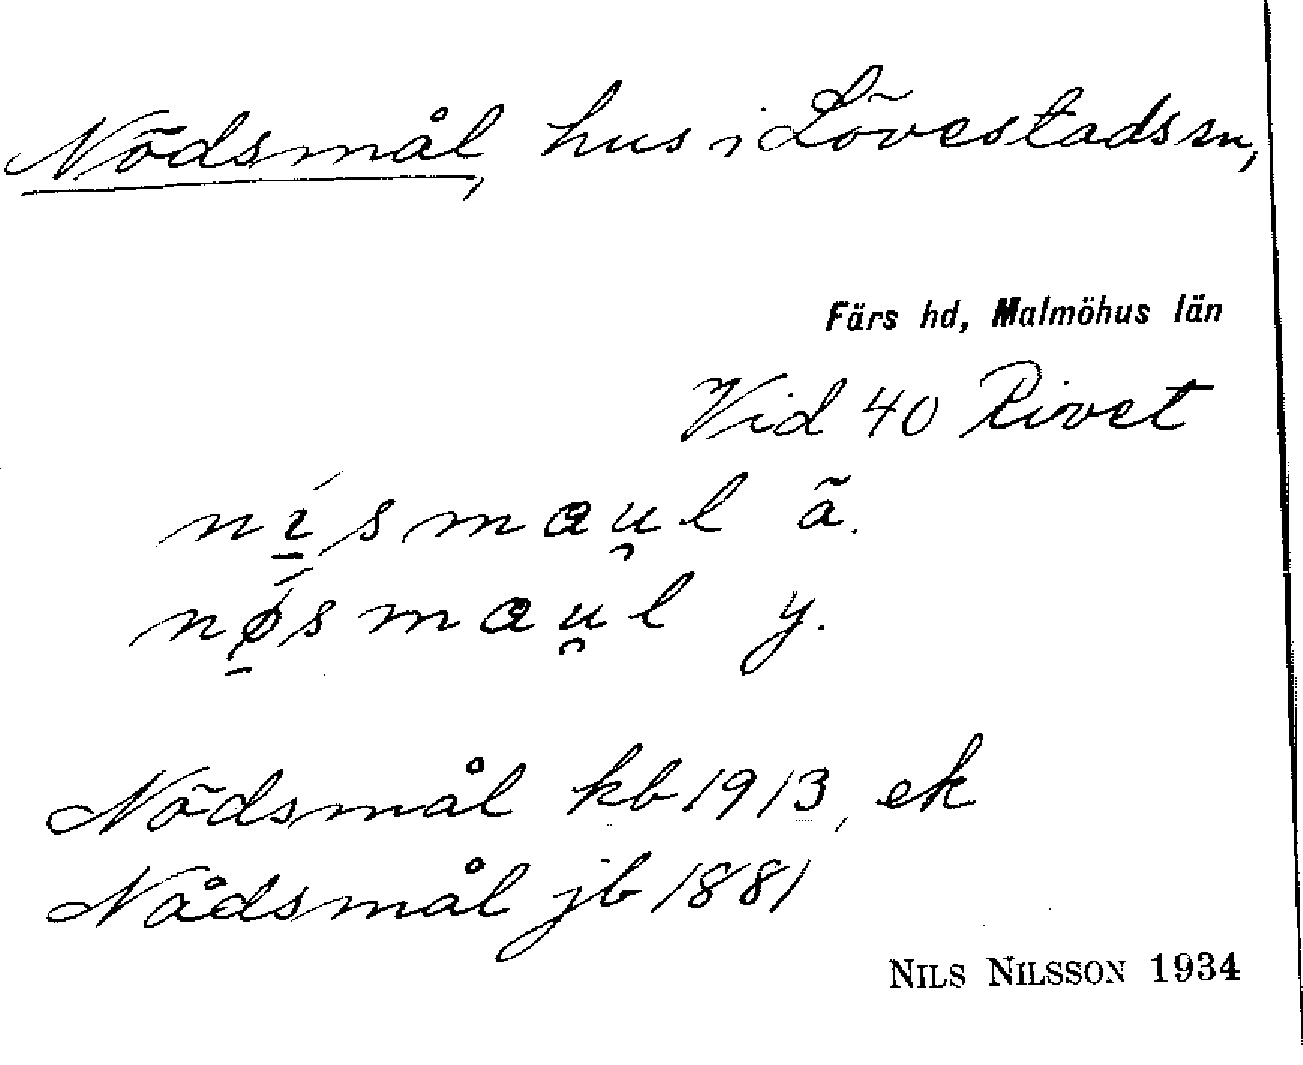 Nödsmål, hus i Lövestads sn,
Färs hd, Malmöhus län
Vid 40 Rivet
ní̱smɑu̯l ä.
nǿ̱smɑu̯l y.
Nödsmål kb 1913, ek
Nådsmål jb 1881
NILS NILSSON 1934